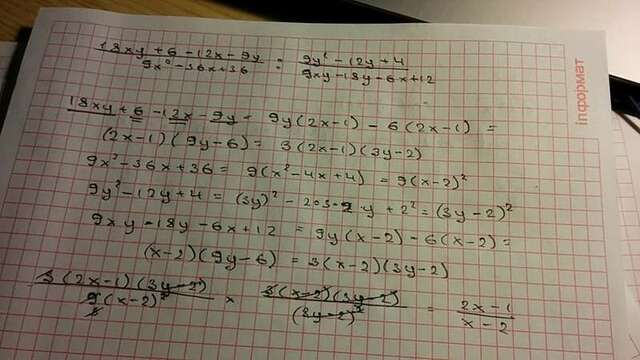 (18xy + 6 - 12x - 9y)/(9x² - 36x + 36) : (9y² - 12y + 4)/(9xy - 18y - 6x + 12)
18xy + 6 - 12x - 9y = 9y(2x-1) - 6(2x-1) =
(2x-1)(9y-6) = 3(2x-1)(3y-2)
9x² - 36x + 36 = 9(x² - 4x + 4) = 9(x-2)²
9y² - 12y + 4 = (3y)² - 2·3·2·y + 2² = (3y-2)²
9xy - 18y - 6x + 12 = 9y(x-2) - 6(x-2) =
(x-2)(9y-6) = 3(x-2)(3y-2)
3(2x-1)(3y-2)/9(x-2)² × 3(x-2)(3y-2)/(3y-2)² = (2x-1)/(x-2)
інформат